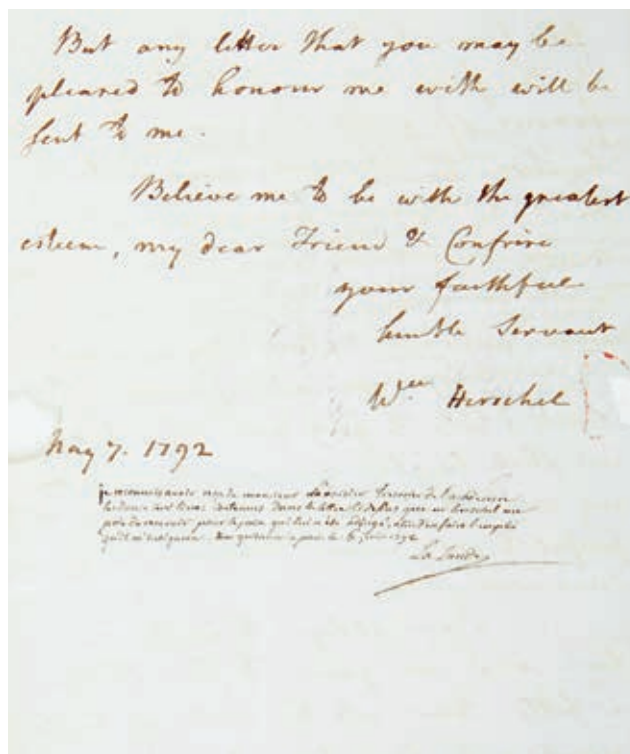 But any letter that you may be
pleased to honour me with will be
sent to me.
Believe me to be with the greatest
esteem, my dear Friend & Confrere
your faithful
humble Servant
Wm Herschel
May 7. 1792
je reconnais avoir reçu de monsieur Lavoisier tresorier de l'academie
dans la lettre que m. herschel
pour le prix qui lui a été adjugé,
a paris le 6 juin 1792
La Lande